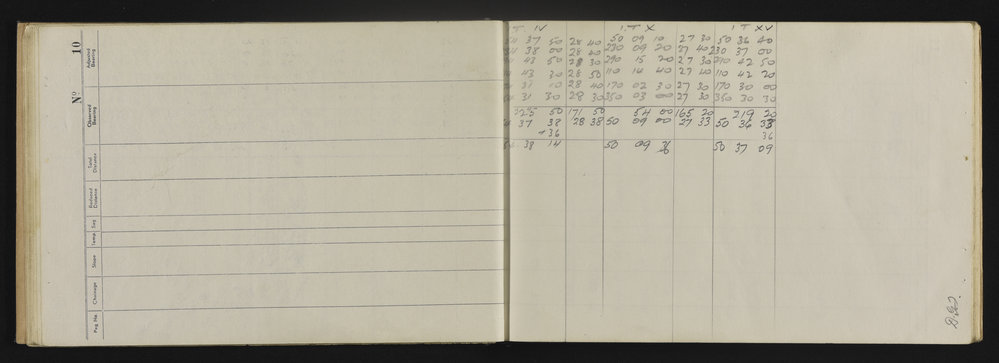 Nº 10
Peg No
Chainage
Slope
Temp.
Sag
Reduced Distance
Total Distance
Observed Bearing
Adjusted Bearing
I.T IV I.T X I.T XV
37 50 28 40 50 09 10 27 30 50 36 40
38 00 28 40 230 09 20 27 40 230 37 00
43 50 28 30 290 15 20 27 30 290 42 50
43 30 28 50 110 14 40 27 40 110 42 20
31 10 28 40 170 02 30 27 30 170 30 00
31 30 28 30 350 03 00 27 30 350 30 30
325 50 171 50 54 00 165 20 219 20
37 38 28 38 50 09 00 27 33 50 36 33
+36 36
38 14 50 09 36 50 37 09